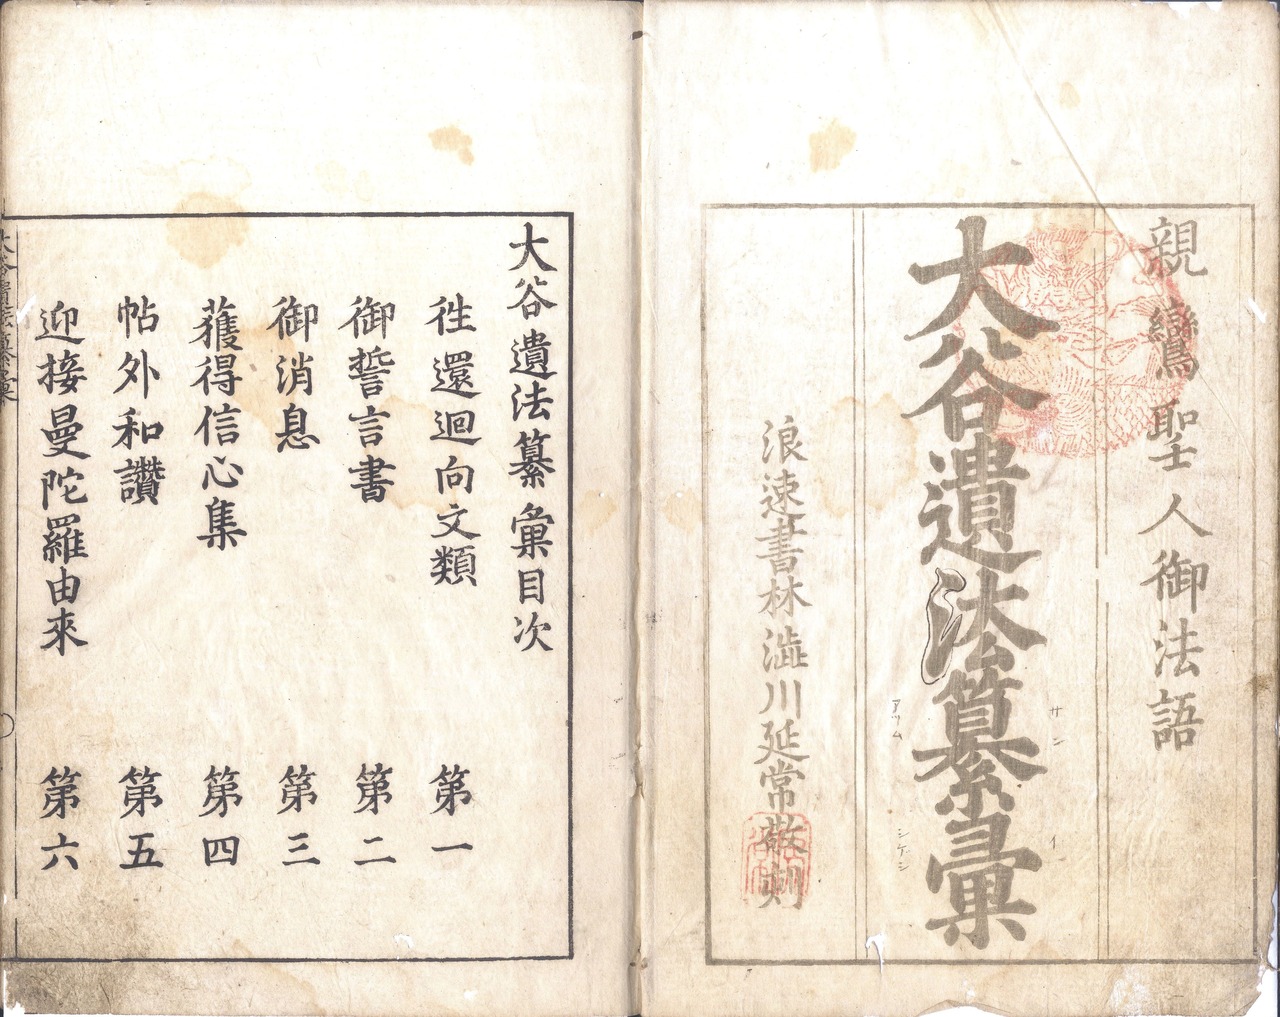 親鸞聖人御法語
大谷遺法纂彙
サン
イ
アツム
シゲシ
浪速書林澁川延常敬刻
大谷遺法纂彙目次
徃還迴向文類 第一
御誓言書 第二
御消息 第三
獲得信心集 第四
帖外和讚 第五
迎接曼陀羅由來 第六
大谷遺法纂彙